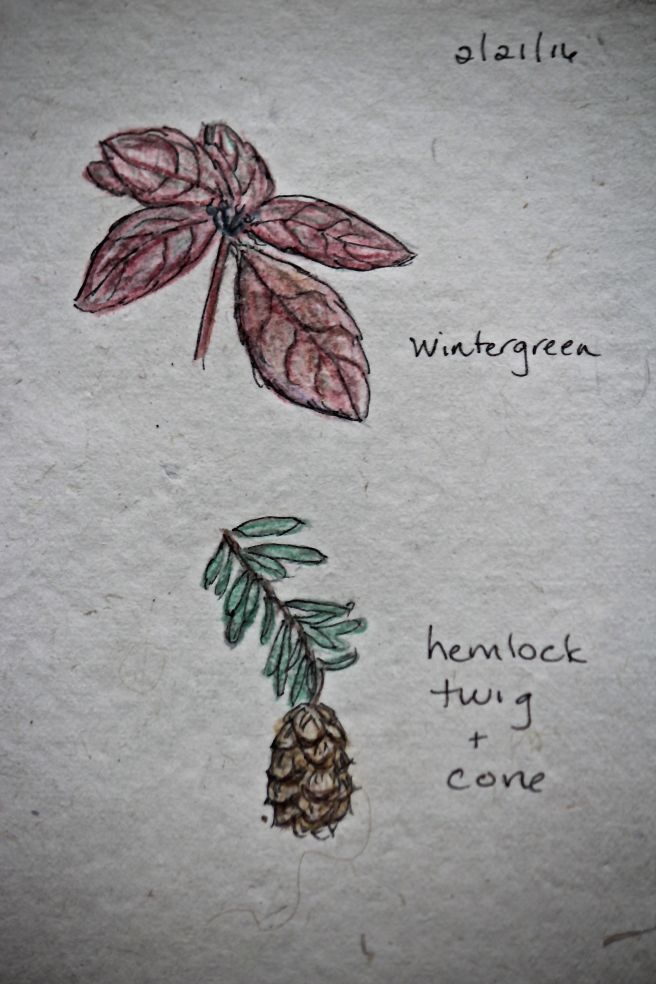 2/21/16
wintergreen
hemlock
twig
+
cone